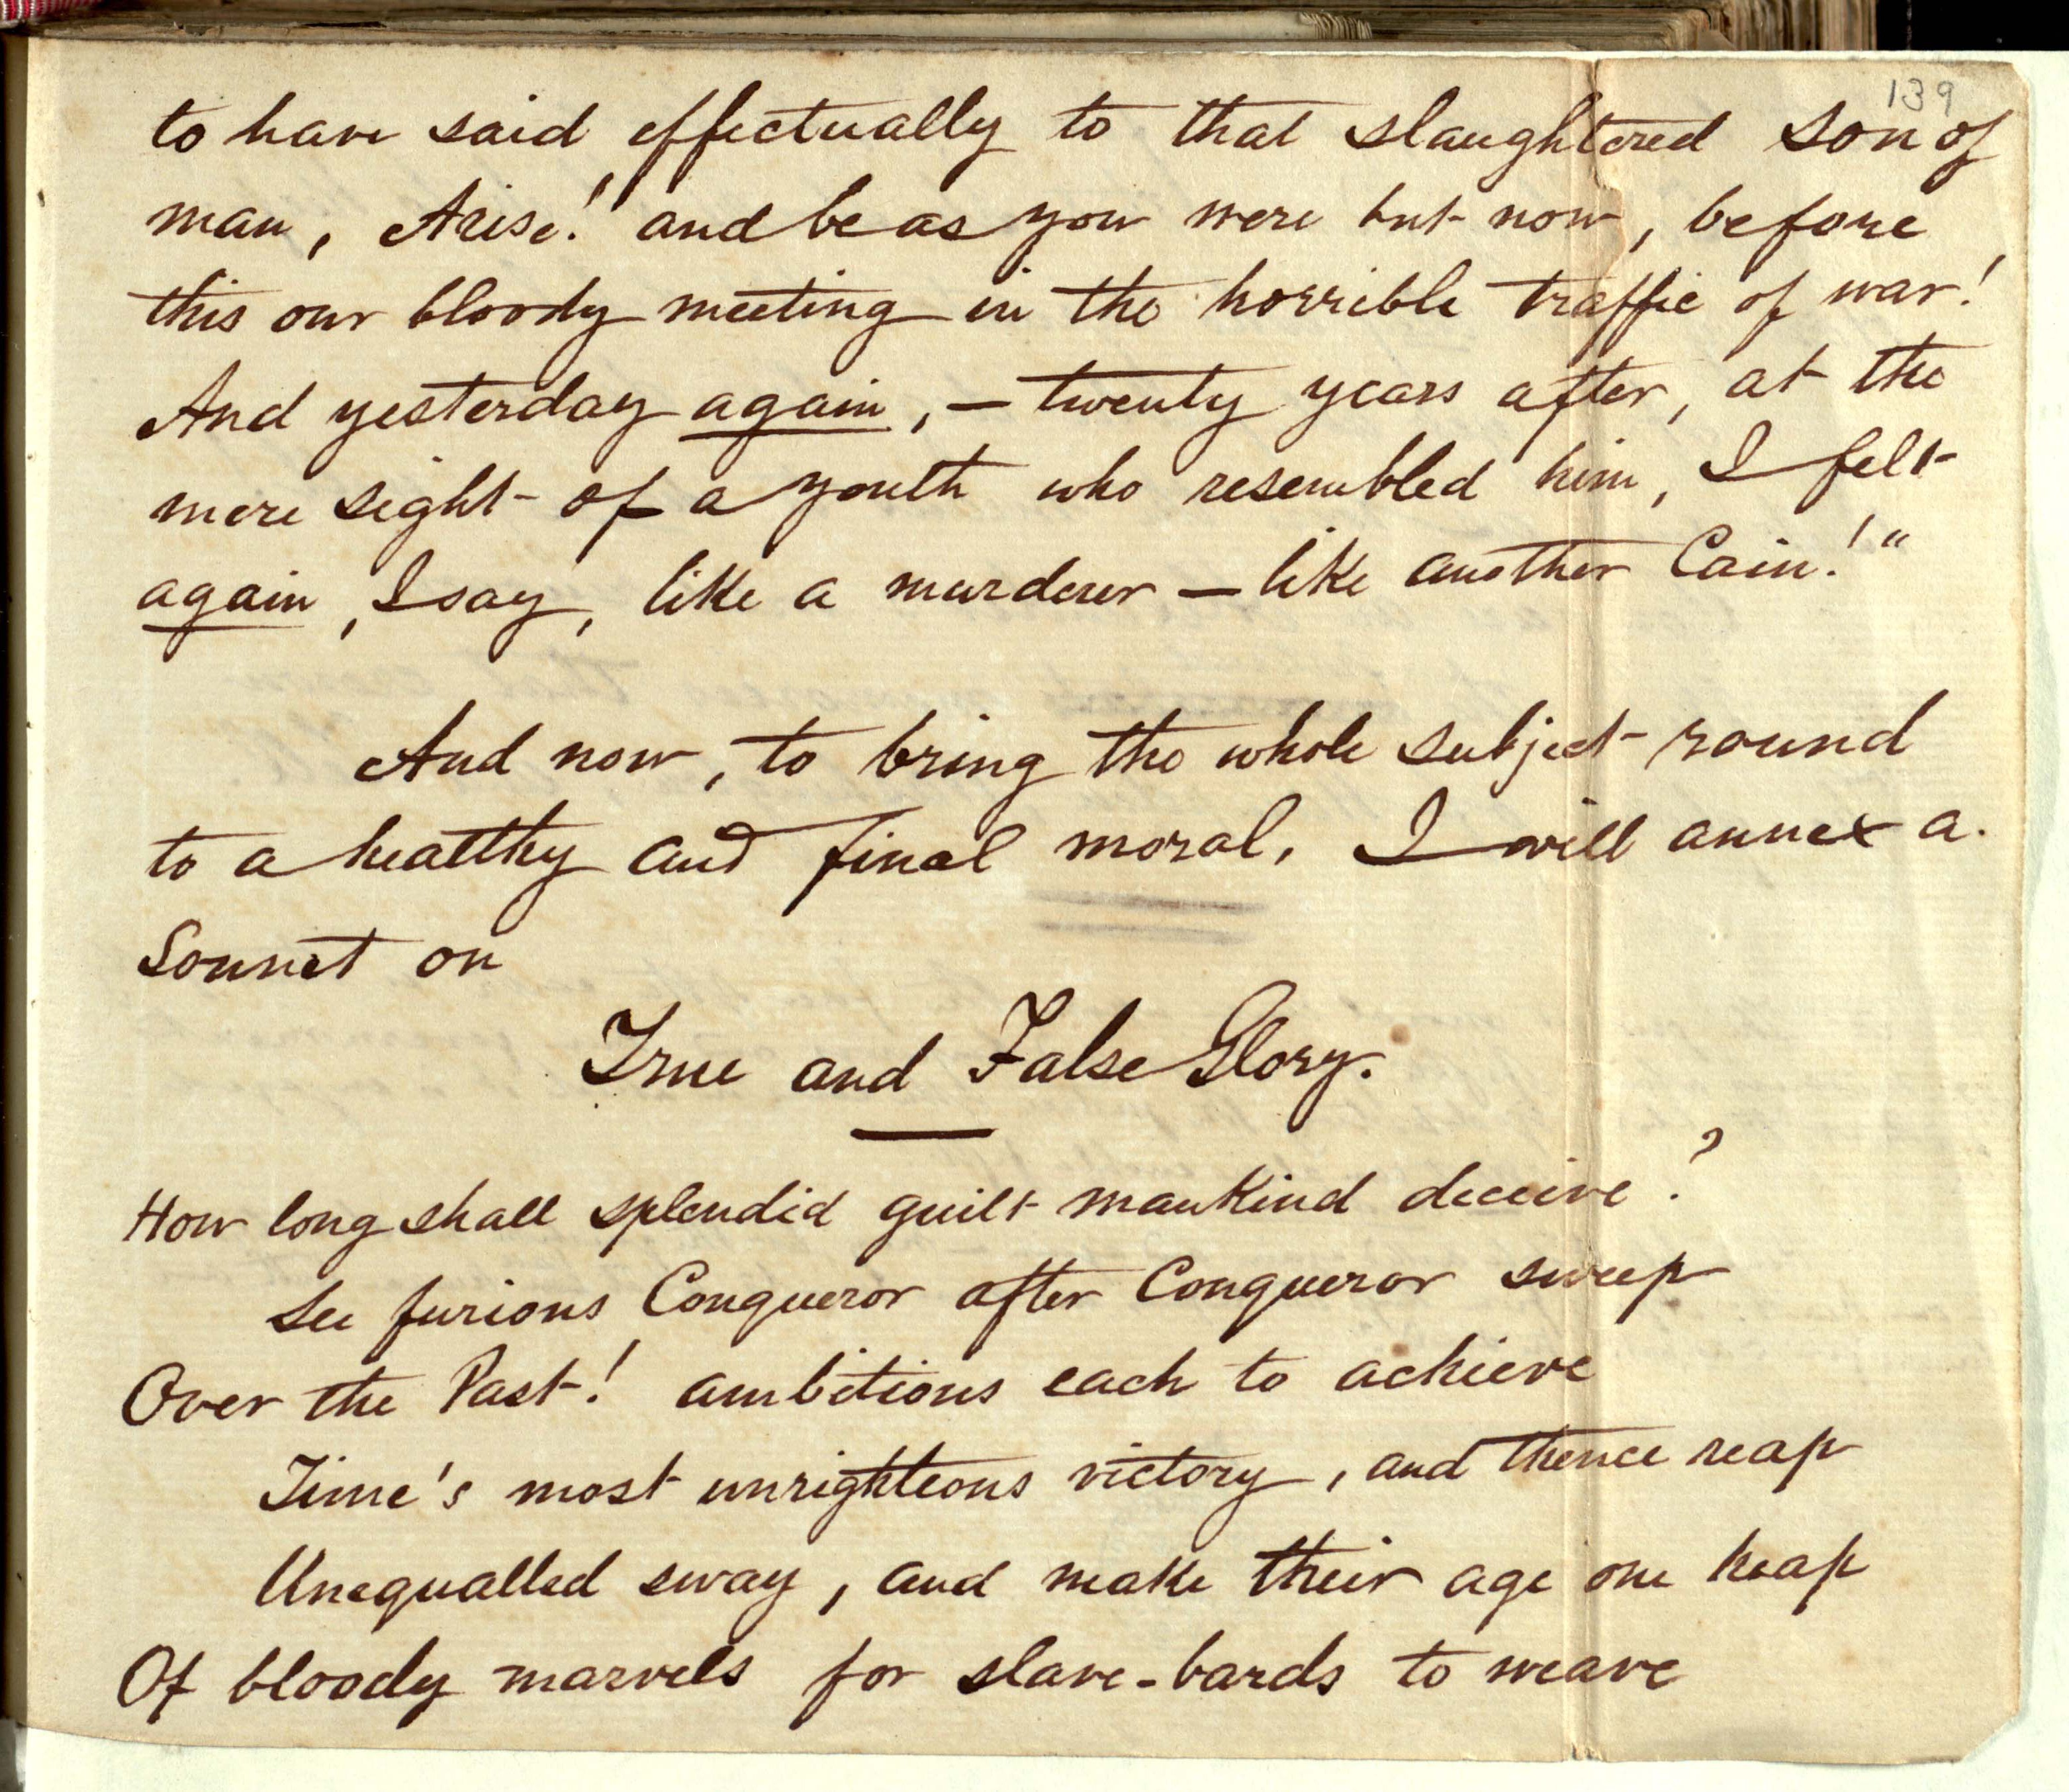 139
to have said effectually to that slaughtered son of
man, Arise! and be as you were but now, before
this our bloody meeting in the horrible traffic of war!
And yesterday again, — twenty years after, at the
mere sight of a youth who resembled him, I felt
again, I say, like a murderer — like another Cain!"
And now, to bring the whole subject round
to a healthy and final moral, I will annex a
Sonnet on
True and False Glory.
How long shall splendid guilt mankind deceive?
See furious Conqueror after Conqueror sweep
Over the Past! ambitious each to achieve
Time's most unrighteous victory, and thence reap
Unequalled sway, and make their age one heap
Of bloody marvels for slave-bards to weave